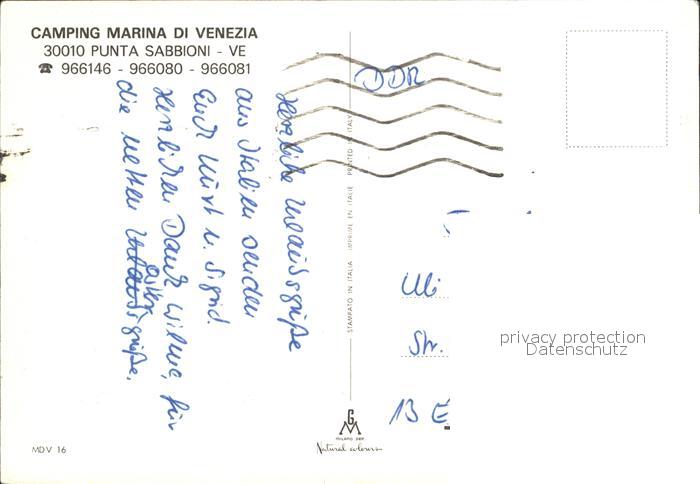 CAMPING MARINA DI VENEZIA
30010 PUNTA SABBIONI - VE
☎ 966146 - 966080 - 966081
Herzliche Urlaubsgrüße
aus Italien senden
Euch Kurt u. Sigrid.
Herzlichen Dank Wilma, für
die netten Urlaubs Oster grüße.
DDR
Uli
Str.
13 E
privacy protection
Datenschutz
STAMPATO IN ITALIA IMPRIMÉ EN ITALIE PRINTED IN ITALY
GM
MILANO DEP.
Natural colours
MDV 16